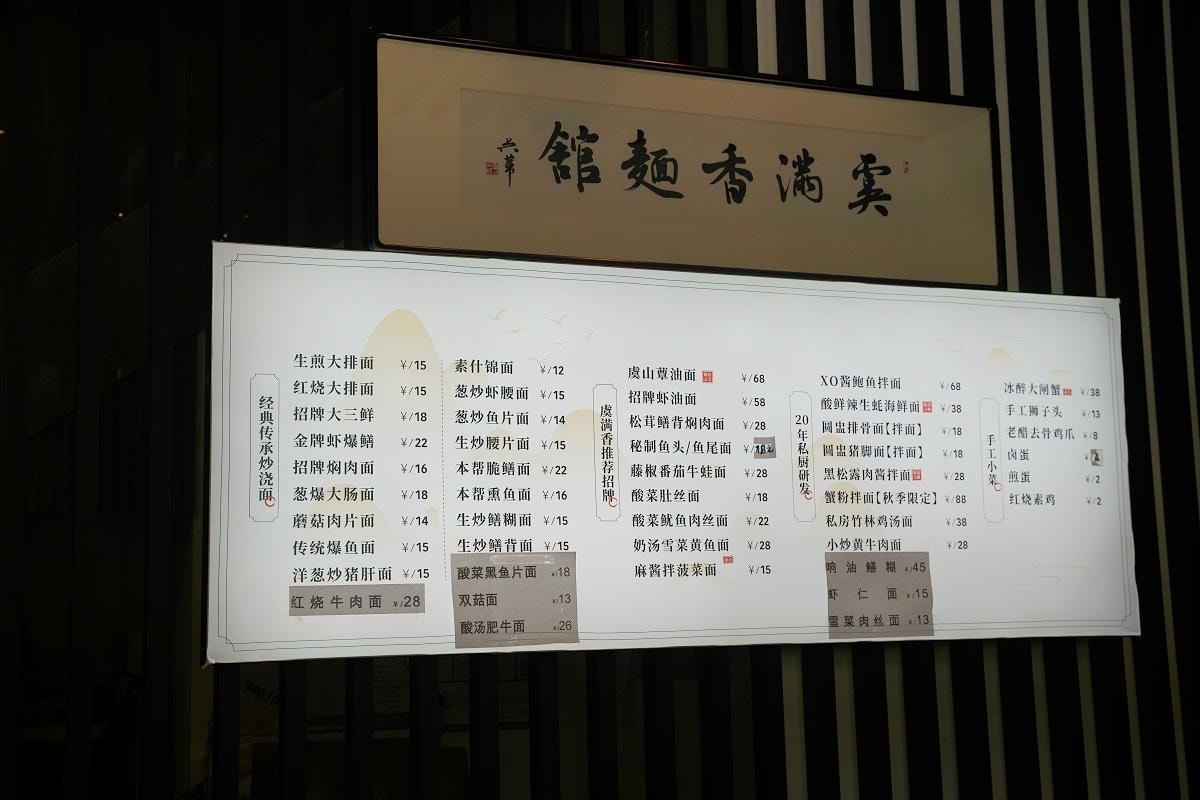 虞滿香麵舘
经典传承炒浇面
生煎大排面 ¥/15
红烧大排面 ¥/15
招牌大三鲜 ¥/18
金牌虾爆鳝 ¥/22
招牌焖肉面 ¥/16
葱爆大肠面 ¥/18
蘑菇肉片面 ¥/14
传统爆鱼面 ¥/15
洋葱炒猪肝面 ¥/15
红烧牛肉面 ¥/28
素什锦面 ¥/12
葱炒虾腰面 ¥/15
葱炒鱼片面 ¥/14
生炒腰片面 ¥/15
本帮脆鳝面 ¥/22
本帮熏鱼面 ¥/16
生炒鳝糊面 ¥/15
生炒鳝背面 ¥/15
酸菜黑鱼片面 ¥/18
双菇面 ¥/13
酸汤肥牛面 ¥/26
虞满香推荐招牌
虞山蕈油面 ¥/68
招牌虾油面 ¥/58
松茸鳝背焖肉面 ¥/28
秘制鱼头/鱼尾面 ¥/
藤椒番茄牛蛙面 ¥/28
酸菜肚丝面 ¥/18
酸菜鱿鱼肉丝面 ¥/22
奶汤雪菜黄鱼面 ¥/28
麻酱拌菠菜面 ¥/15
20年私厨研发
XO酱鲍鱼拌面 ¥/68
酸鲜辣生蚝海鲜面 ¥/38
圆盅排骨面【拌面】 ¥/18
圆盅猪脚面【拌面】 ¥/18
黑松露肉酱拌面 ¥/28
蟹粉拌面【秋季限定】 ¥/88
私房竹林鸡汤面 ¥/38
小炒黄牛肉面 ¥/28
响油鳝糊 ¥/45
虾仁面 ¥/15
雪菜肉丝面 ¥/13
手工小菜
冰醉大闸蟹 ¥/38
手工狮子头 ¥/13
老醋去骨鸡爪 ¥/8
卤蛋 ¥
煎蛋 ¥/2
红烧素鸡 ¥/2